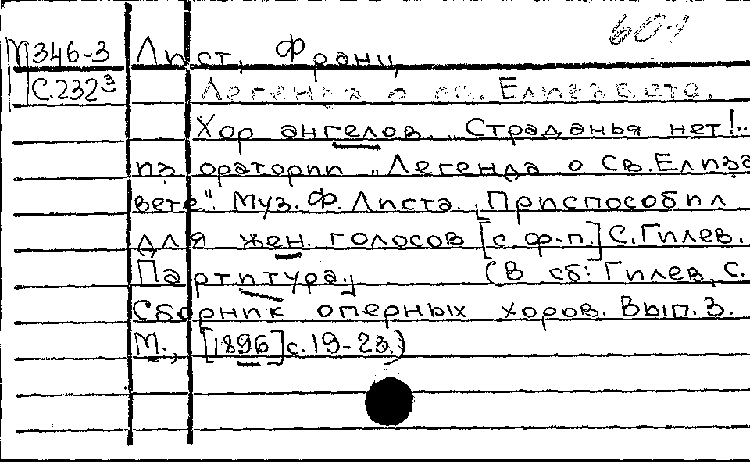 601
М346-3 Лист, Франц
С.232³ Легенда о св. Елизавете.
Хор ангелов. „Страданья нет!..
из оратории „Легенда о Св. Елиза
вете". Муз. Ф. Листа. Приспособил
для жен. голосов [с ф-п.] С. Гилев.
Партитура. (В сб: Гилев, С.
Сборник оперных хоров. Вып. 3.
М., [1896] с. 19-23.)